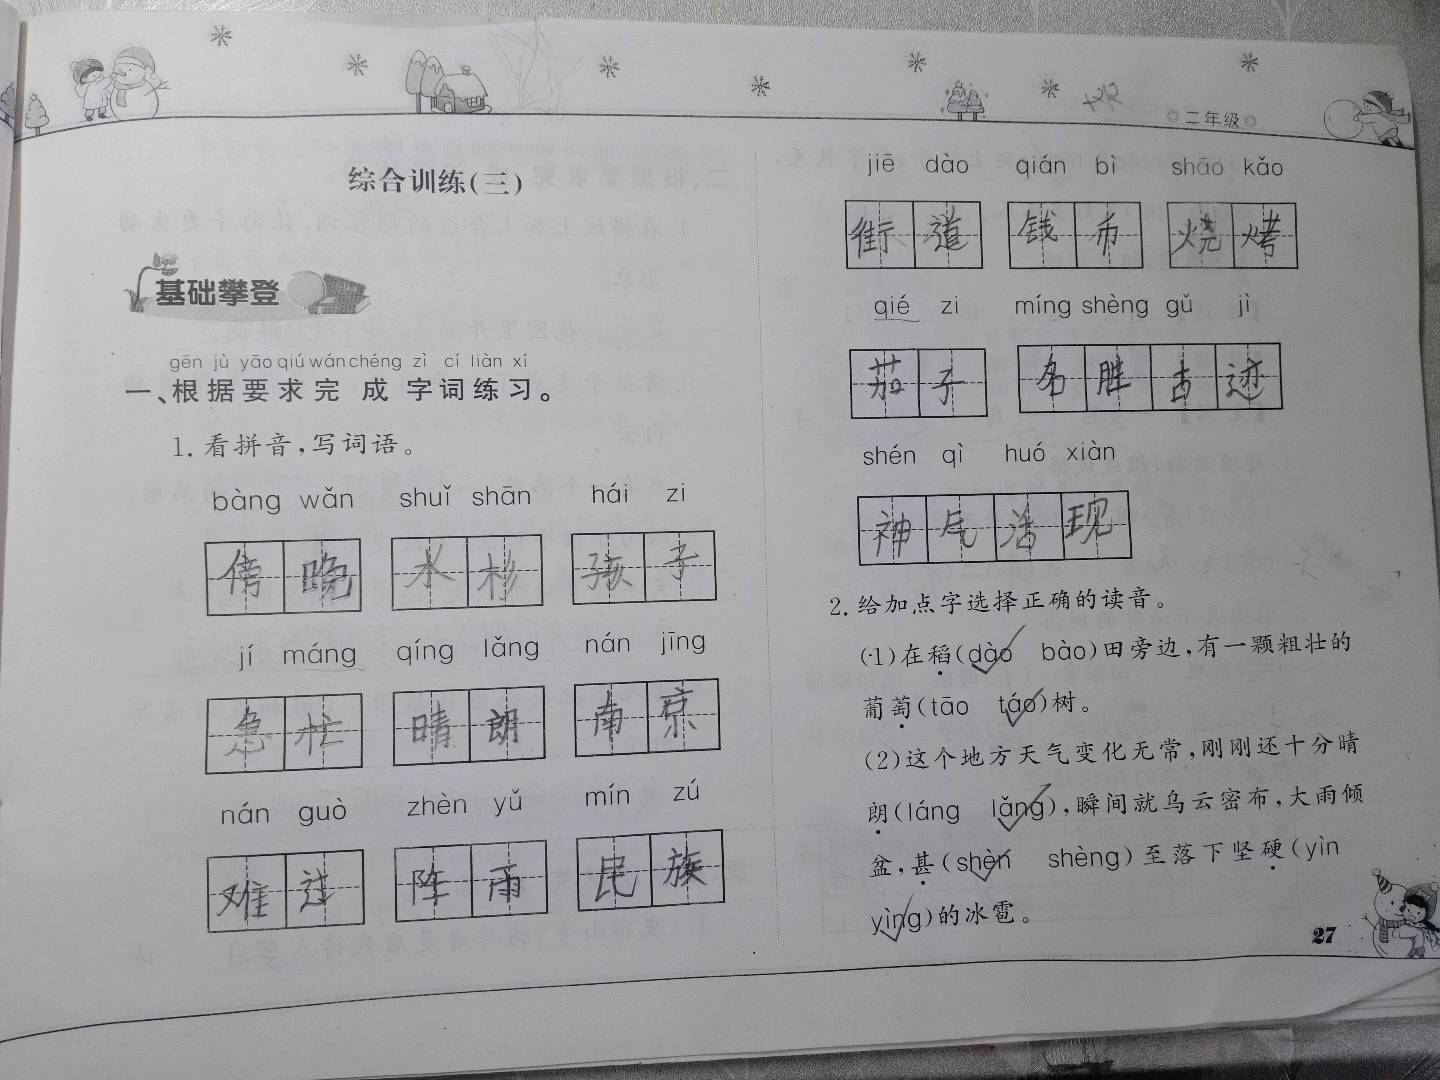 二年级
综合训练(三)
基础攀登
gēn jù yāo qiú wán chéng zì cí liàn xí
一、根据要求完成字词练习。
1. 看拼音,写词语。
bàng wǎn shuǐ shān hái zi
傍晚 水杉 孩子
jí máng qíng lǎng nán jīng
急忙 晴朗 南京
nán guò zhèn yǔ mín zú
难过 阵雨 民族
jiē dào qián bì shāo kǎo
街道 钱币 烧烤
qié zi míng shèng gǔ jì
茄子 名胜古迹
shén qì huó xiàn
神气活现
2. 给加点字选择正确的读音。
(1)在稻(dào bào)田旁边,有一颗粗壮的
葡萄(tāo táo)树。
(2)这个地方天气变化无常,刚刚还十分晴
朗(láng lǎng),瞬间就乌云密布,大雨倾
盆,甚(shèn shèng)至落下坚硬(yìn
yìng)的冰雹。
27